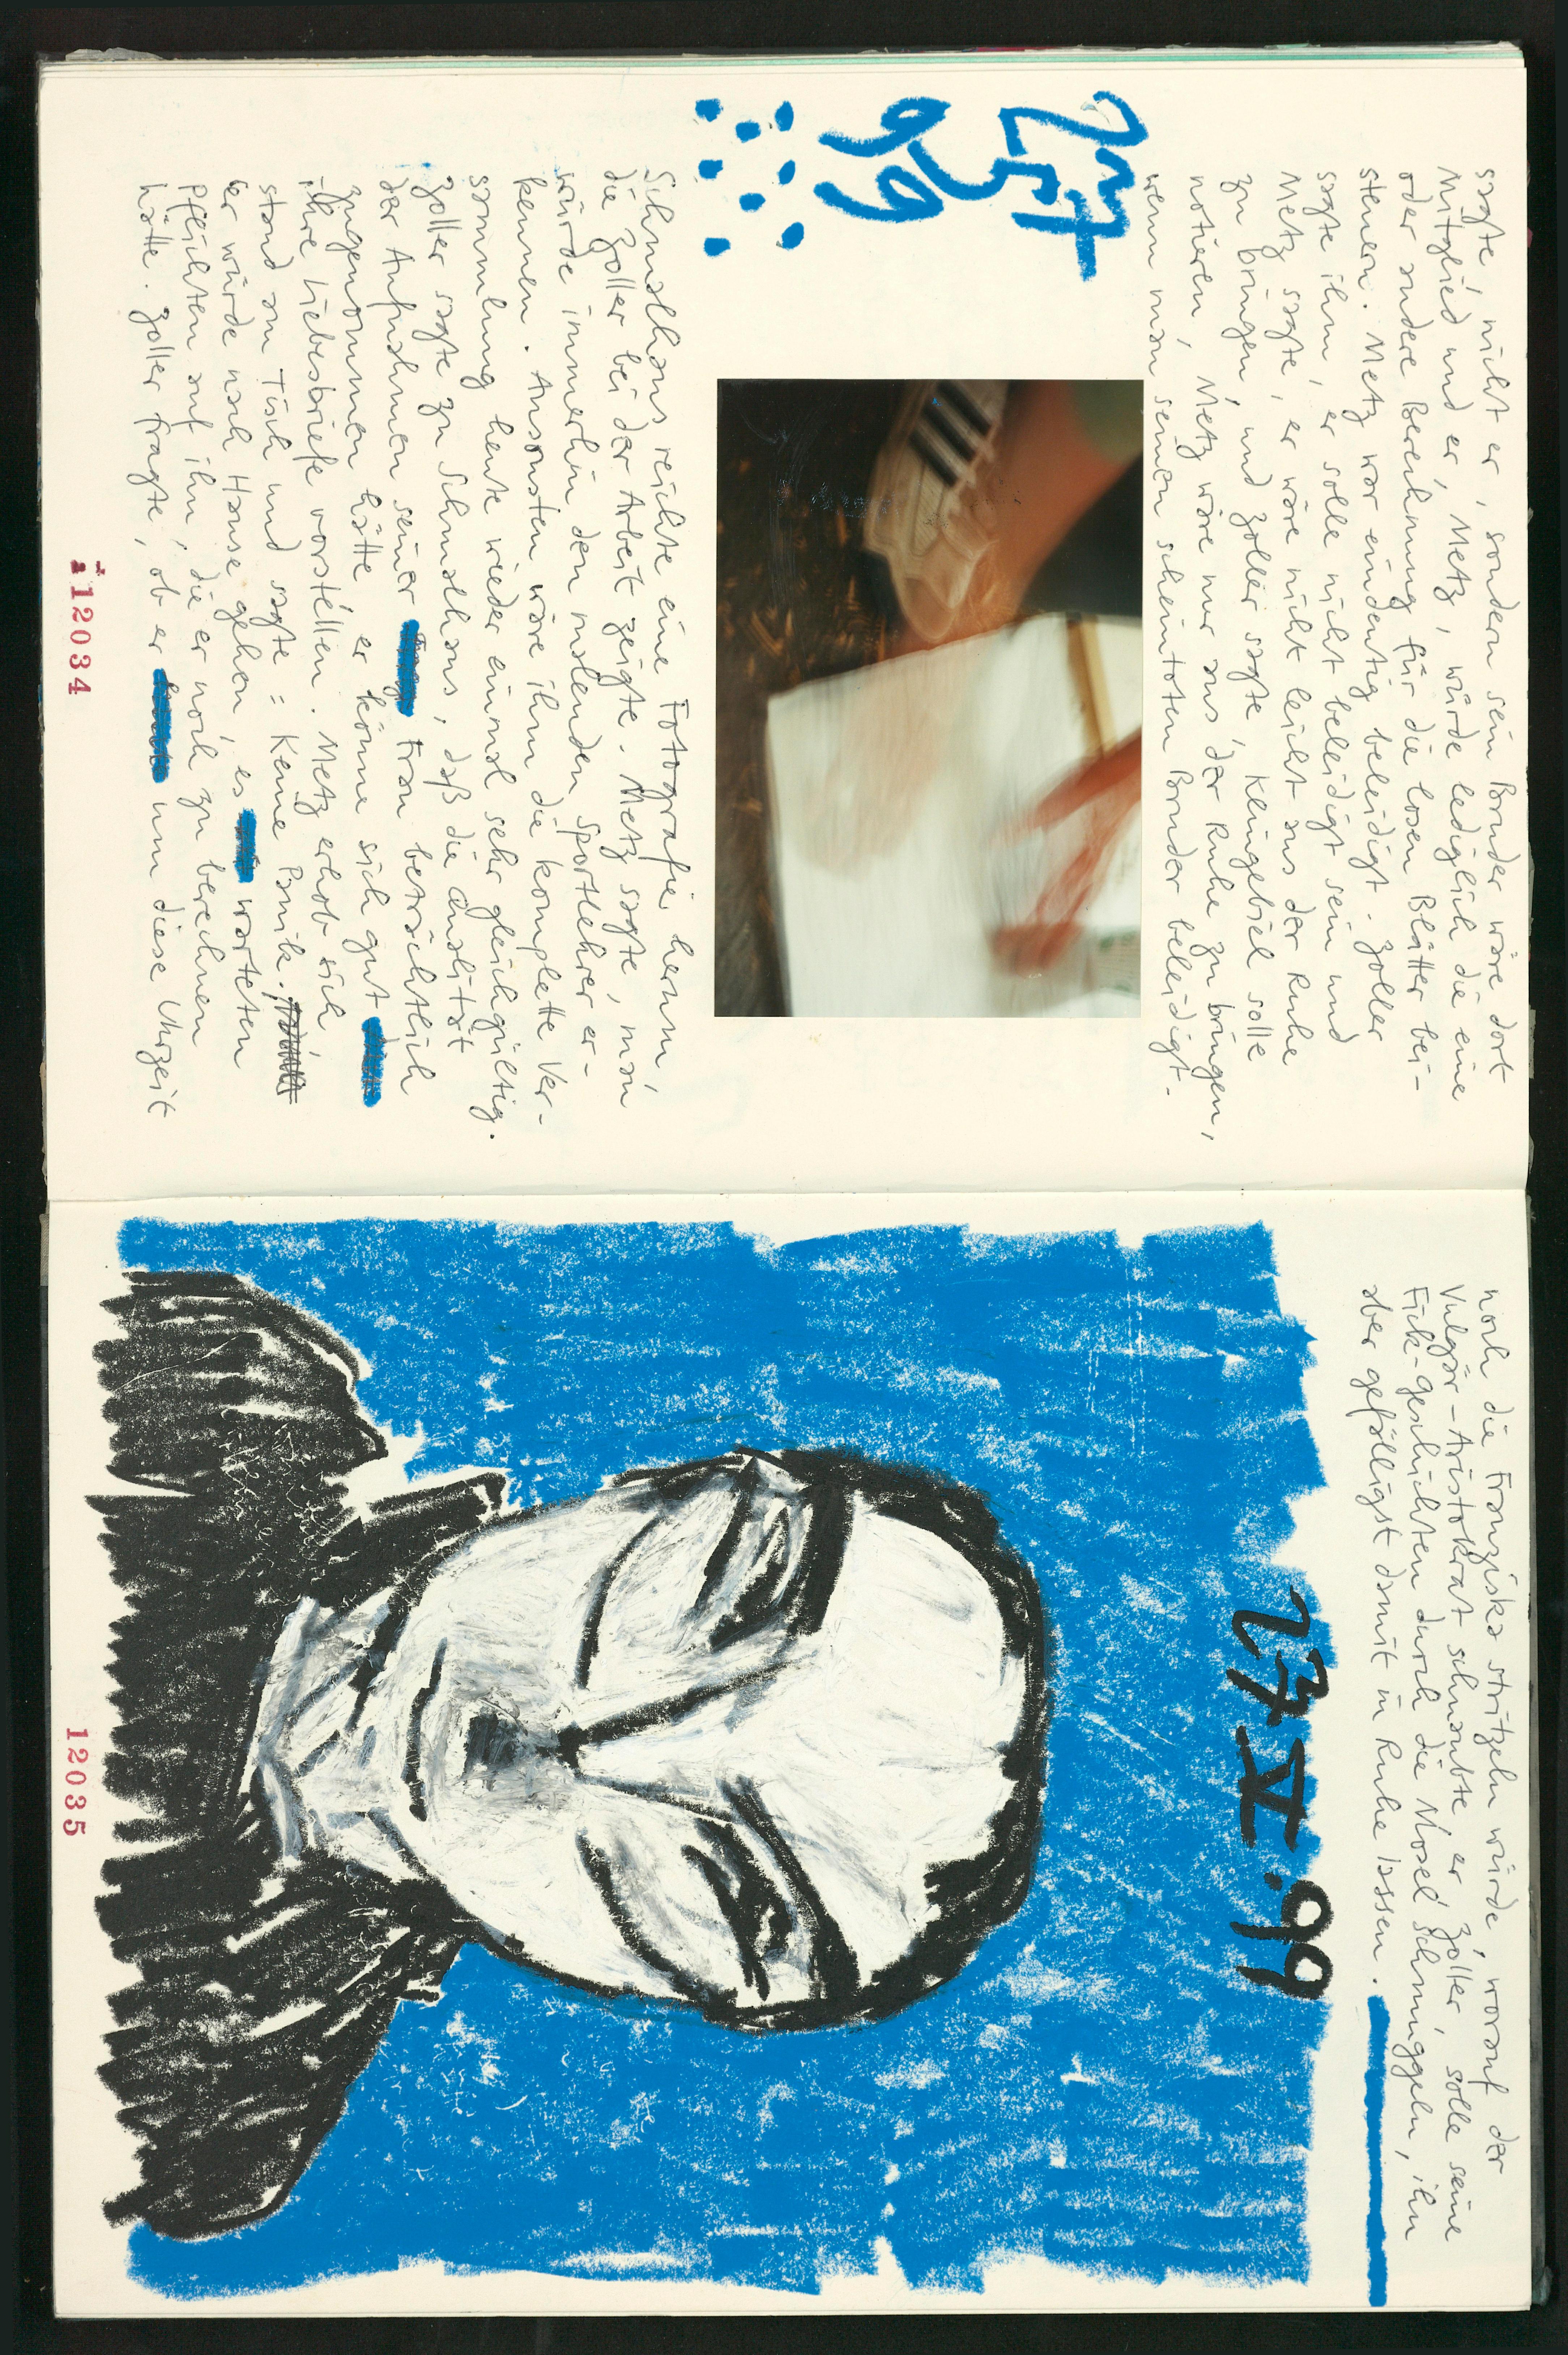 sagte, nicht er, sondern sein Bruder wäre dort
Mitglied und er, Metz, würde lediglich die eine
oder andere Berechnung für die losen Blätter bei-
steuern. Metz war eindeutig beleidigt. Zoller
sagte ihm, er solle nicht beleidigt sein und
Metz sagte, er wäre nicht leicht aus der Ruhe
zu bringen, und Zoller sagte, Klingebiel solle
notieren, Metz wäre nur aus der Ruhe zu bringen,
wenn man seinen scheintoten Bruder beleidigt.
99
Schmalhans reichte eine Fotografie herum,
die Zoller bei der Arbeit zeigte. Metz sagte, man
würde immerhin den malenden Sportlehrer er-
kennen. Ansonsten wäre ihm die komplette Ver-
sammlung heute wieder einmal sehr gleichgültig.
Zoller sagte zu Schmalhans, daß die Qualität
der Aufnahmen seiner Frau beträchtlich
zugenommen hätte er könne sich gut
ihre Liebesbriefe vorstellen. Metz erhob sich
stand am Tisch und sagte: Keine Panik.
er würde nach Hause gehen, es warteten
Pflichten auf ihn, die er noch zu berechnen
hätte. Zoller fragte, ob er um diese Uhrzeit
12034
noch die Franziska stritzeln würde, worauf der
Vulgär-Aristokrat schnaubte er, Zoller, solle seine
Fick-geschichten durch die Mosel schmuggeln, ihn
aber gefälligst damit in Ruhe lassen.
27 V. 99
12035